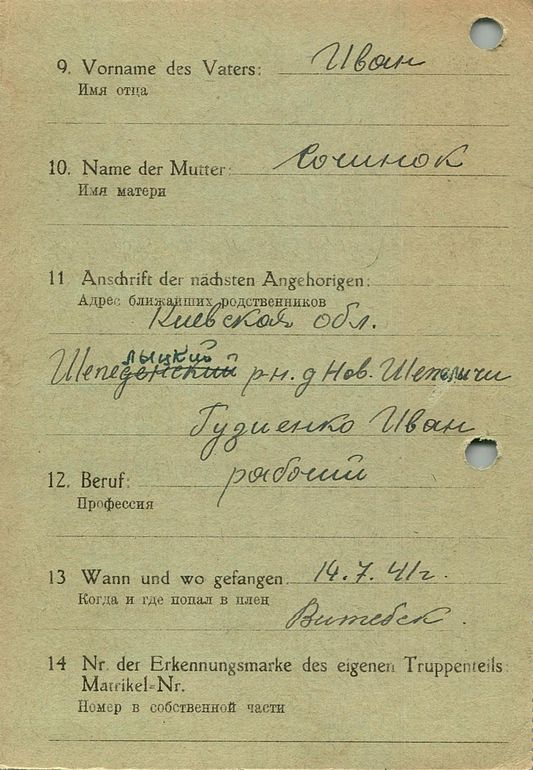 9. Vorname des Vaters: Иван
Имя отца
10. Name der Mutter: Сочинок
Имя матери
11 Anschrift der nächsten Angehörigen:
Адрес ближайших родственников
Киевская обл.
лыцкий
Шепеденский р-н. д Нов. Шепеличи
Гудиенко Иван
12. Beruf: рабочий
Профессия
13 Wann und wo gefangen: 14.7.41г.
Когда и где попал в плен
Витебск.
14 Nr. der Erkennungsmarke des eigenen Truppenteils:
Matrikel=Nr.
Номер в собственной части